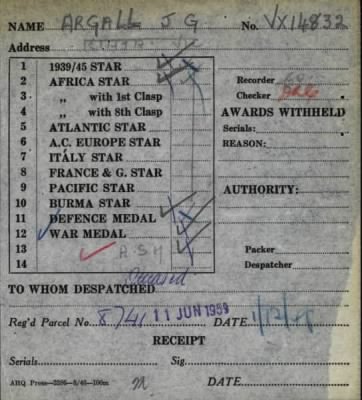 NAME ARGALL J G No. VX14832
Address
1 1939/45 STAR
2 AFRICA STAR
3 „ with 1st Clasp
4 „ with 8th Clasp
5 ATLANTIC STAR
6 A.C. EUROPE STAR
7 ITALY STAR
8 FRANCE & G. STAR
9 PACIFIC STAR
10 BURMA STAR
11 DEFENCE MEDAL
12 WAR MEDAL
13 A.S.M
14
Recorder
Checker
AWARDS WITHHELD
Serials:
REASON:
AUTHORITY:
Packer
Despatcher
Deceased
TO WHOM DESPATCHED
Reg'd Parcel No. 8741 11 JUN 1959 DATE
RECEIPT
Serials Sig.
AHQ Press—3286—8/48—100m DATE